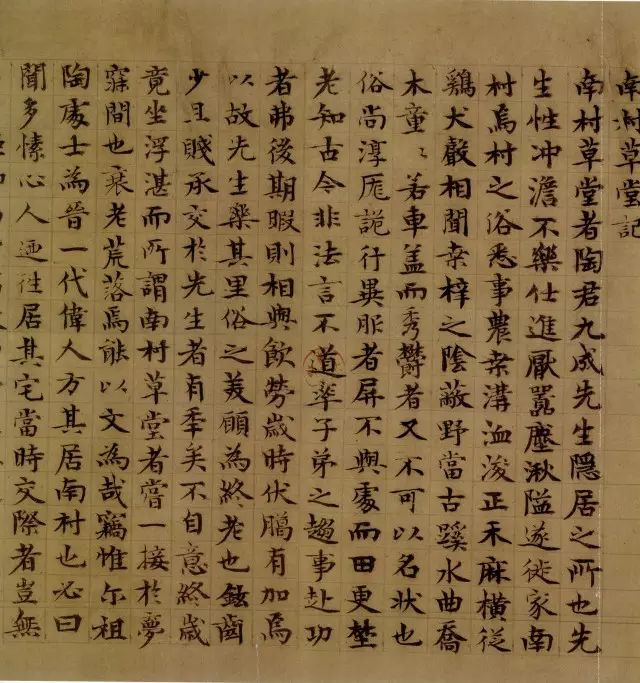 南村草堂記
南村草堂者陶君九成先生隱居之所也先
生性冲澹不樂仕進厭囂塵湫隘遂徙家南
村焉村之俗悉事農桒溝洫浚正禾麻橫從
鷄犬聲相聞桒梓之陰蔽野當古蹊水曲喬
木童〻若車盖而秀欝者又不可以名狀也
俗尚淳厖詭行異服者屏不與處而田更埜
老知古今非法言不道率子弟之趨事赴功
者弗後期暇則相與飲勞歲時伏臈有加焉
以故先生樂其里俗之美願為終老也鉉齒
少且賤承交於先生者有季矣不自意終歲
竟坐浮湛而所謂南村草堂者嘗一接於夢
寐間也衰老荒落焉能以文為哉竊惟尔祖
陶處士為晉一代偉人方其居南村也必曰
聞多愫心人迺往居其宅當時交際者豈無